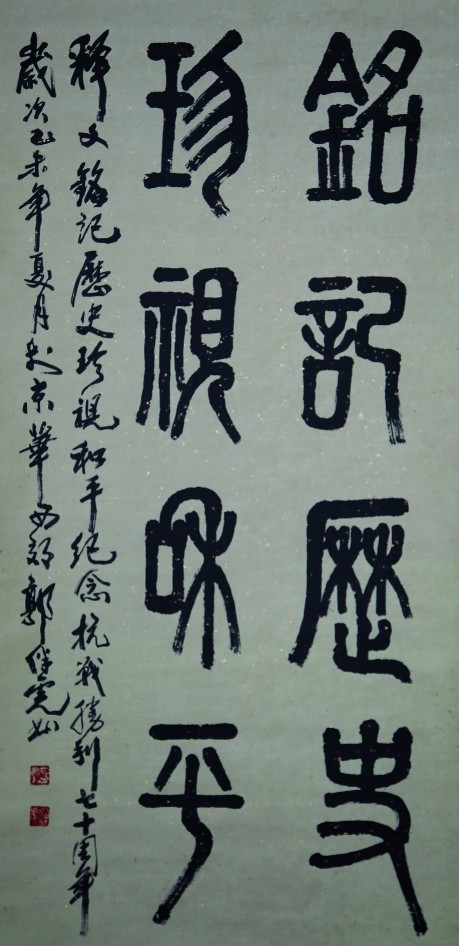 銘記歷史
珍視和平
釋文銘記歷史珍視和平紀念抗戰勝利七十周年
歲次乙未年夏月於京華西郊郭繼憲書